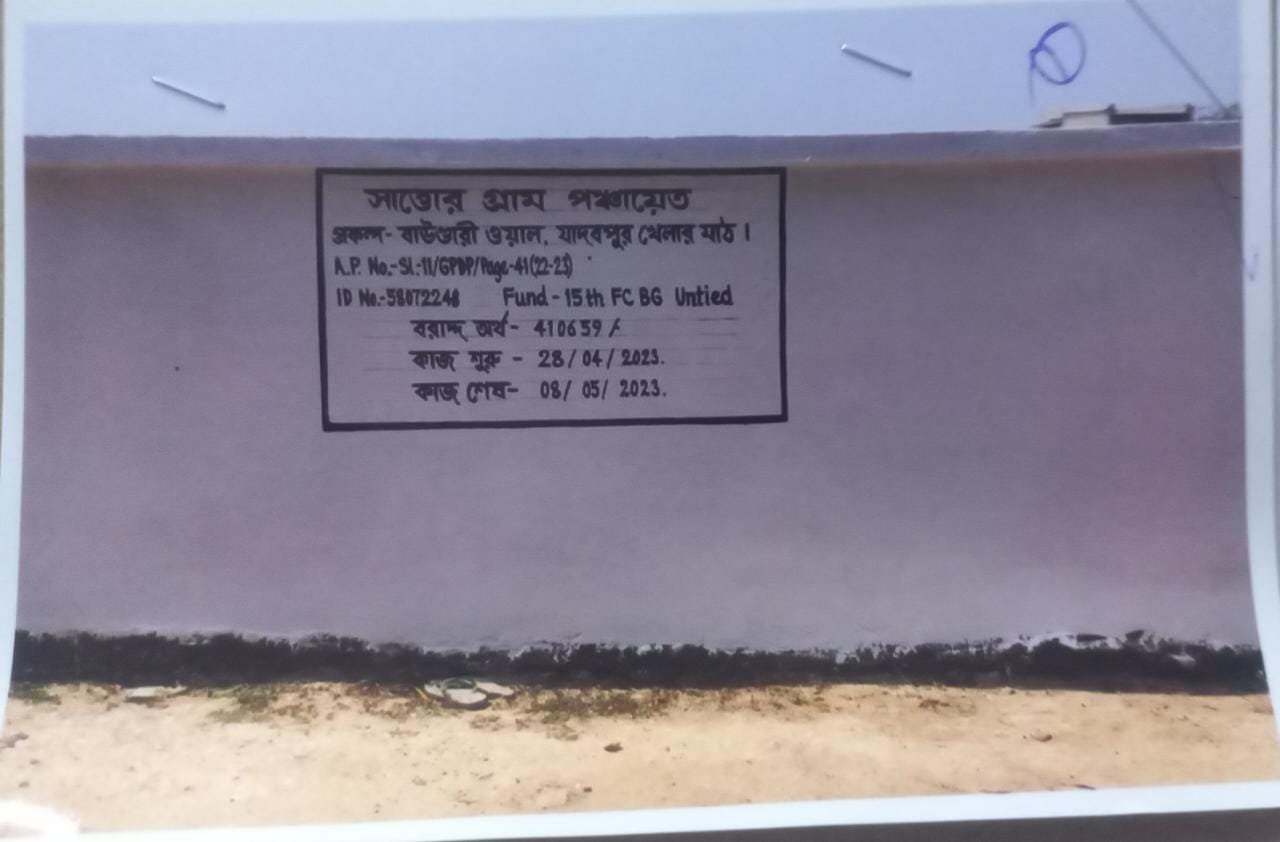 সাত্তোর গ্রাম পঞ্চায়েত
প্রকল্প- বাউন্ডারী ওয়াল, যাদবপুর খেলার মাঠ।
A.P. No.-Sl.-11/GPDP/Page-41(22-23)
ID No.-58072248 Fund-15th FC BG Untied
বরাদ্দ অর্থ- 410659/-
কাজ শুরু - 28/04/2023.
কাজ শেষ- 08/05/2023.